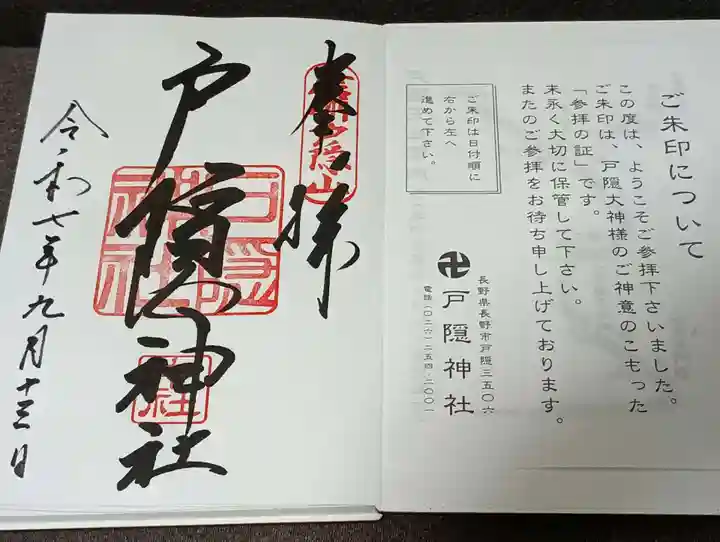 ご朱印について
この度は、ようこそご参拝下さいました。
ご朱印は、戸隠大神様のご神意のこもった
「参拝の証」です。
末永く大切に保管して下さい。
またのご参拝をお待ち申し上げております。
ご朱印は日付順に
右から左へ
進めて下さい。
長野県長野市戸隠三五〇六
電話(〇二六)二五四-二〇〇一
卍戸隠神社
奉拝
戸隠山
戸隠神社
戸隠
神社
令和七年九月十三日